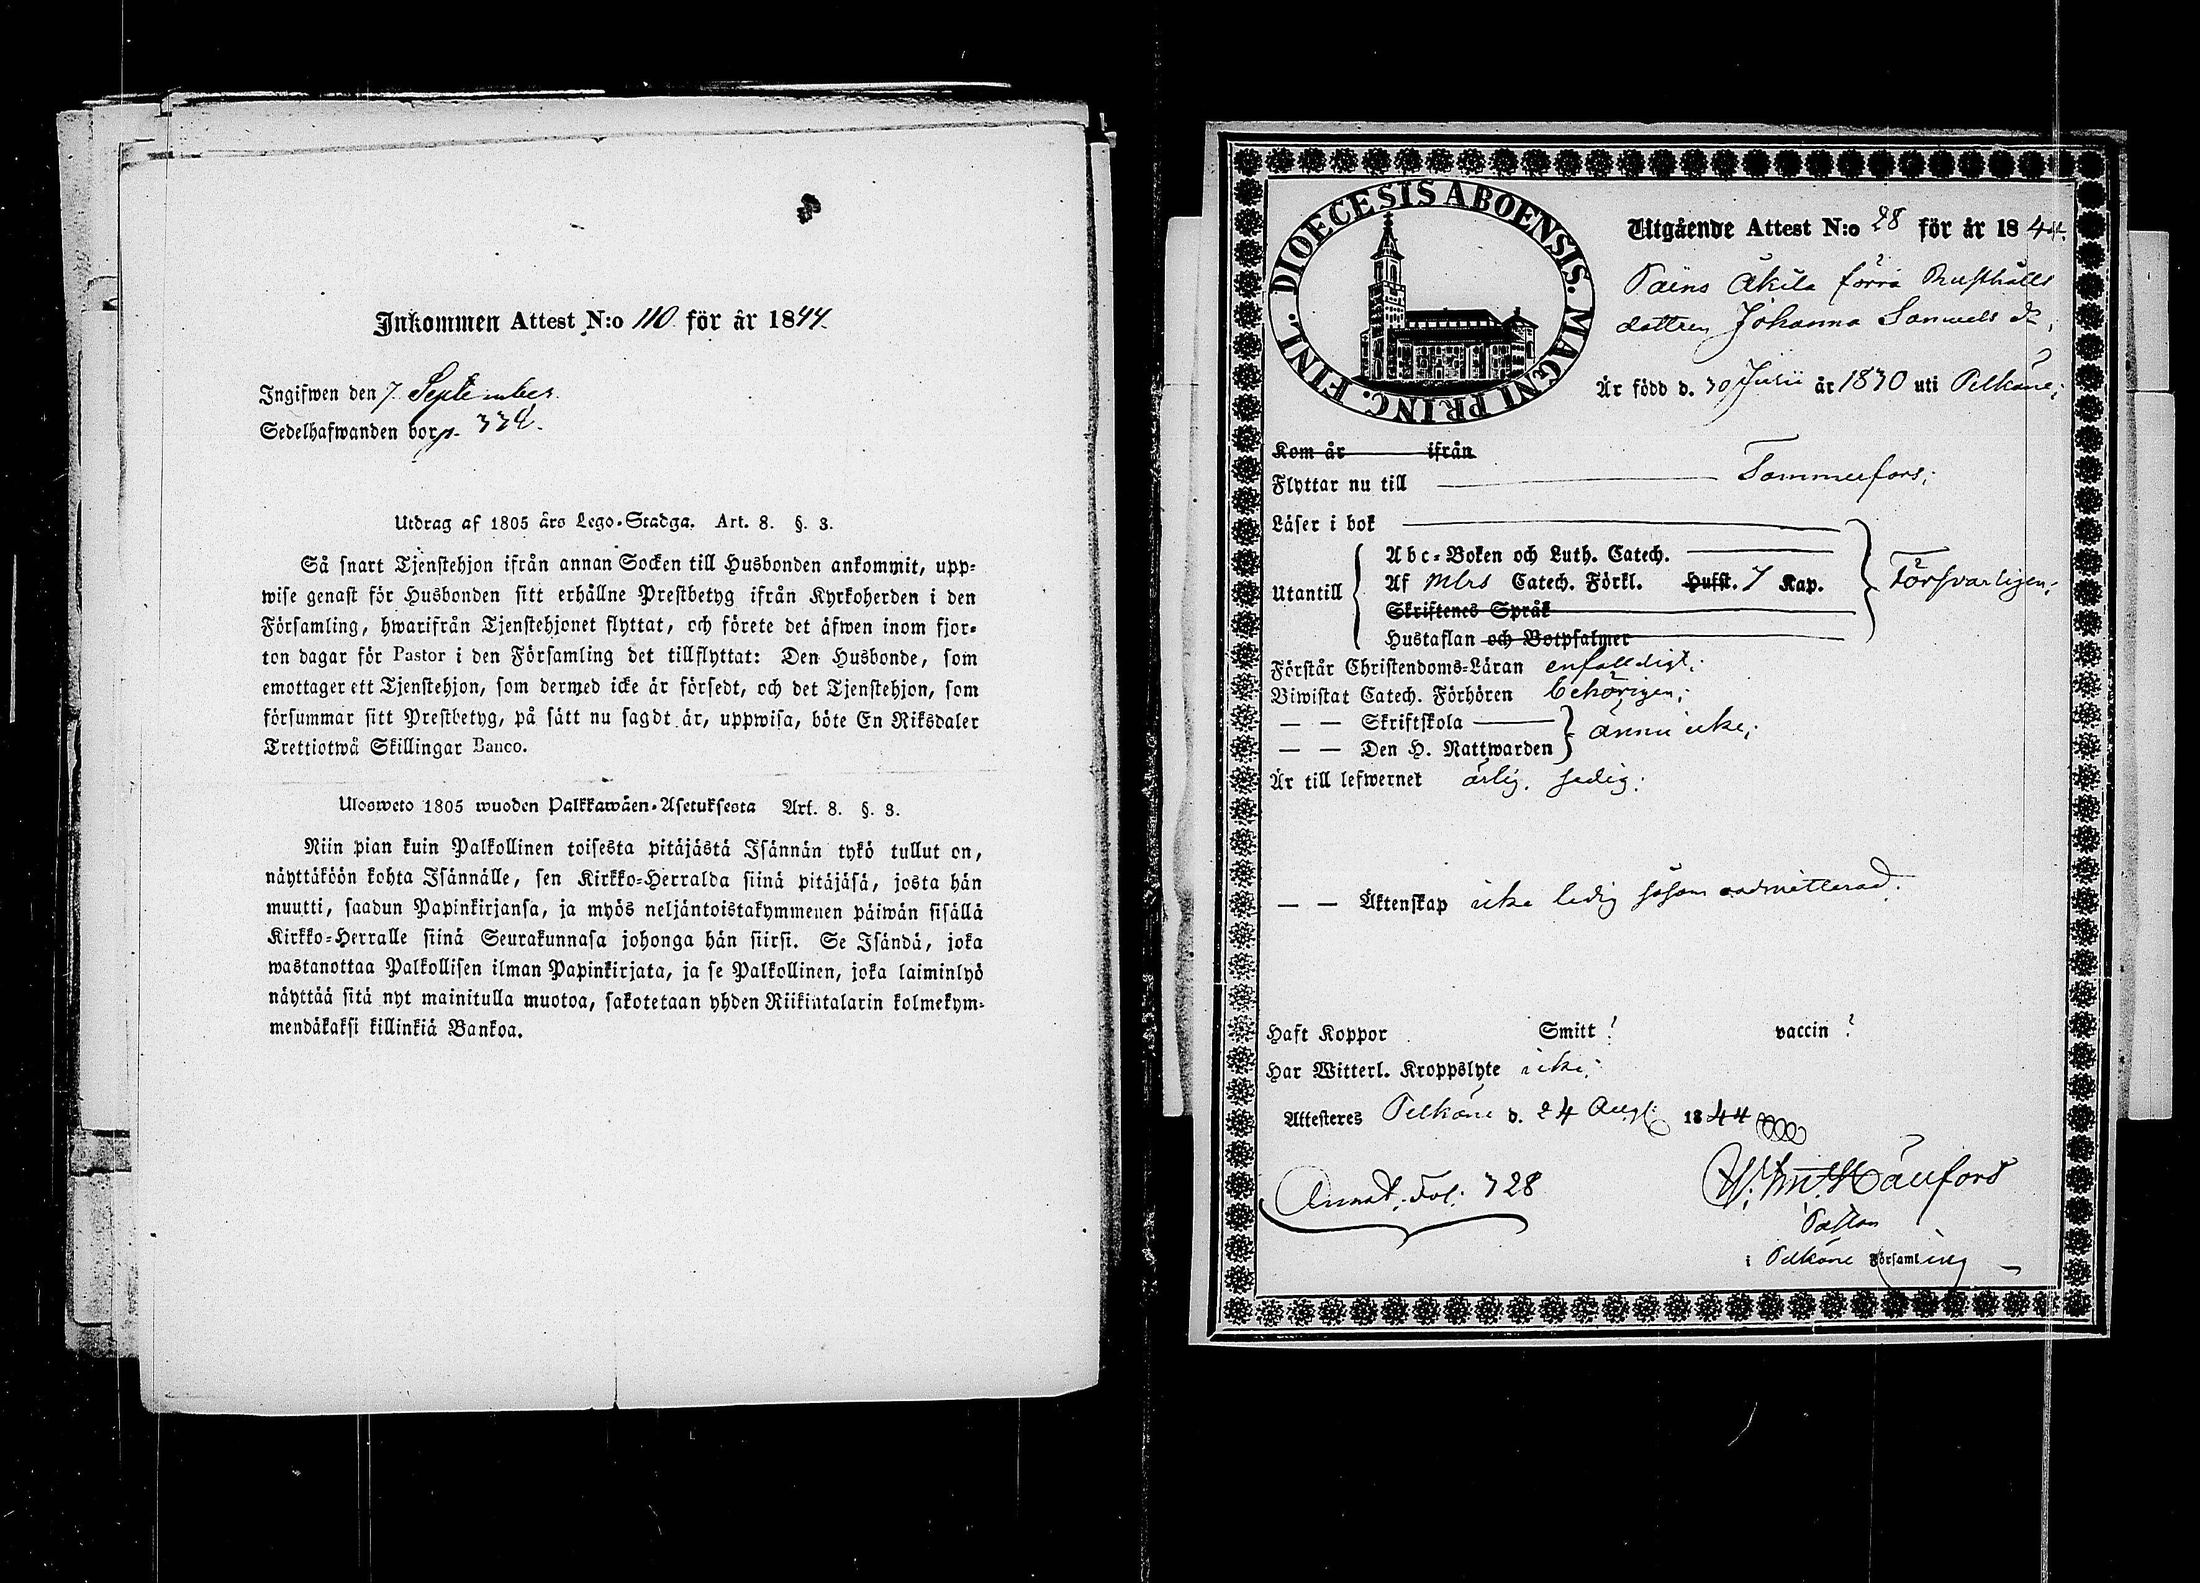 Inkommen Attest N:o 110. för år 1844.
Ingifwen den 7. September
Sedelhafwanden bor p. 334.
Utdrag af 1805 års Lego-Stadga. Art. 8. §. 3.
Så snart Tjenstehjon ifrån annan Socken till Husbonden ankommit, upp-
wise genast för Husbonden sitt erhållne Prestbetyg ifrån Kyrkoherden i den
Församling, hwarifrån Tjenstehjonet flyttat, och förete det äfwen inom fjor-
ton dagar för Pastor i den Församling det tillflyttat: Den Husbonde, som
emottager ett Tjenstehjon, som dermed icke är försedt, och det Tjenstehjon, som
försummar sitt Prestbetyg, på sätt nu sagdt är, uppwisa, böte En Riksdaler
Trettiotwå Skillingar Banco.
Ulosweto 1805 wuoden Palkkawäen-Asetuksesta Art. 8. §. 3.
Niin pian kuin Palkollinen toisesta pitäjästä Isännän tykö tullut on,
näyttäköön kohta Isännälle, sen Kirkko-Herralda siinä pitäjäsä, josta hän
muutti, saadun Papinkirjansa, ja myös neljäntoistakymmenen päiwän sisällä
Kirkko-Herralle siinä Seurakunnasa johonga hän siirsi. Se Isändä, joka
wastanottaa Palkollisen ilman Papinkirjata, ja se Palkollinen, joka laiminlyö
näyttää sitä nyt mainitulla muotoa, sakotetaan yhden Riikintalarin kolmekym-
mendäkaksi killinkiä Bankoa.
DIOECESIS ABOENSIS. MAGNI PRINC. FINL.
Utgående Attest N:o 28 för år 1844.
Päins Äkilä förra Rusthålls
dottren Johanna Samuels dr,
Är född d. 30 Julii år 1830 uti Pelkäne;
Kom år ifrån
Flyttar nu till Tammerfors;
Läser i bok
Abc-Boken och Luth. Catech.
Utantill Af Mlrs Catech. Förkl. Hufst. 7 Kap. Försvarligen;
Skriftenes Språk
Hustaflan och Botpsalmer
Förstår Christendoms-Läran enfalldigt;
Biwistat Catech. Förhören behörigen;
— — Skriftskola ännu icke;
— — Den H. Nattwarden
Är till lefwernet ärlig, sedig;
— — Äktenskap icke ledig såsom oadmitterad.
Haft Koppor Smitt! vaccin?
Har Witterl. Kroppslyte icke;
Attesteres Pelkäne d. 24 Aug. 1844
Annot. Fol. 328
Pastor
i Pelkäne Församling